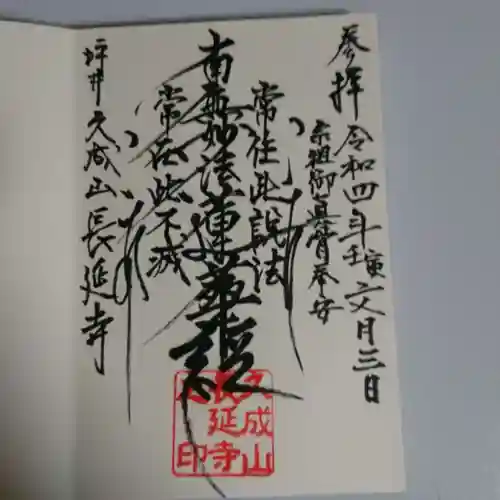 奉拝 令和四年壬寅六月三日
宗祖御真骨奉安
常住此説法
南無妙法蓮華経
常在此不滅
坪井 久成山長延寺
久成山
長延寺
印